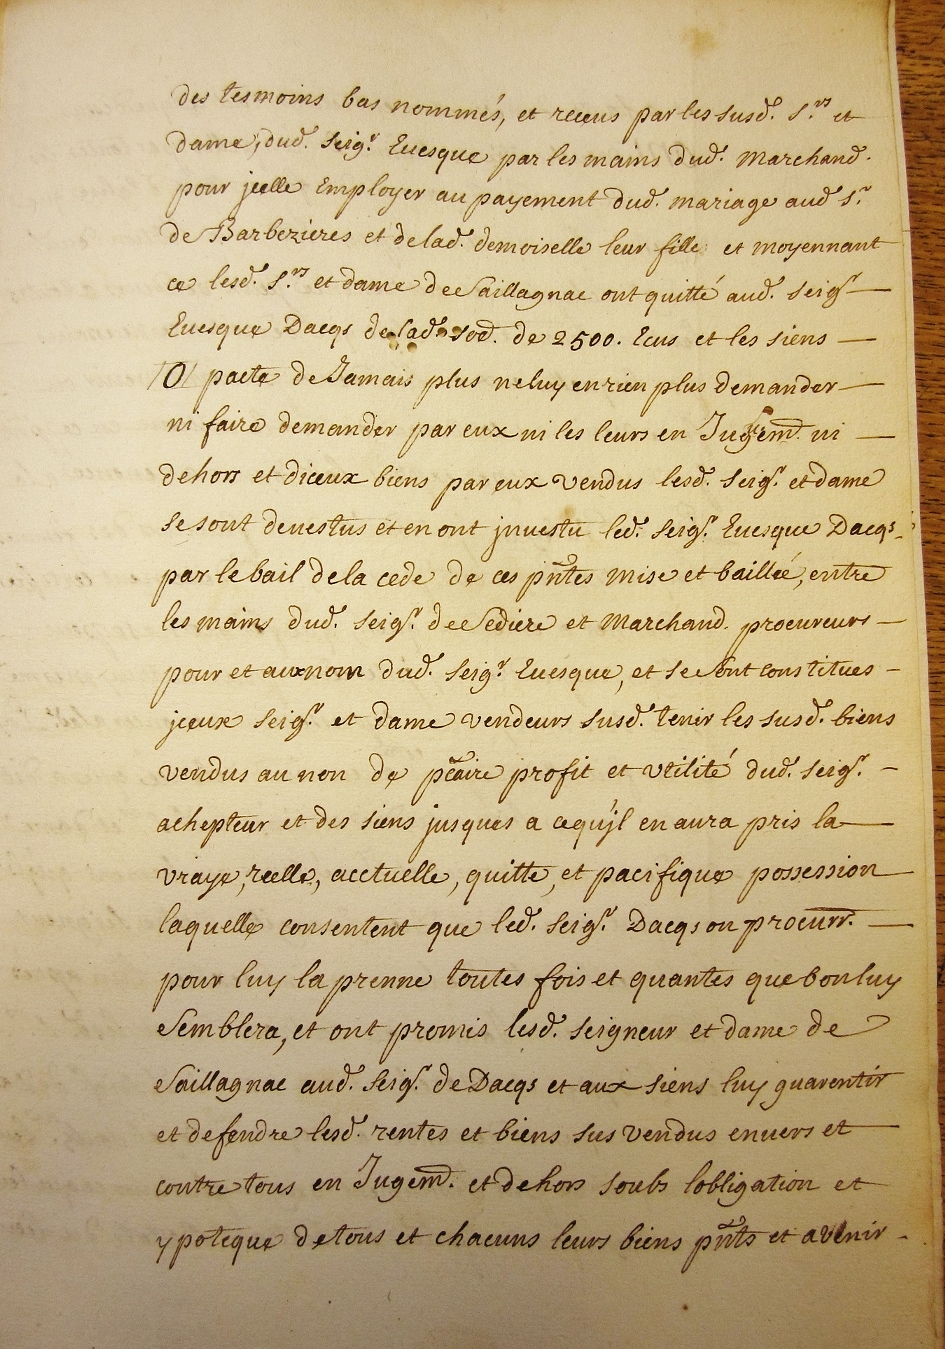 des tesmoins bas nommés, et receus par les susd. S.rs et
dame, dud. Seig.r Euesque par les mains dud. Marchand.
pour jcelle Employer au payement dud. mariage aud S.r
de Barbezieres et de lad. demoiselle leur fille et moyennant
ce lesd. S.rs et dame de Saillagnac ont quitté aud. Seig.r
Euesque Dacqs de lad. Sod. de 2500. Ecus et les siens
/O/ pacte de Jamais plus ne luy en rien plus demander
ni faire demander par eux ni les leurs en Jugem.t ni
dehors et diceux biens par eux vendus lesd. Seig.r et dame
se sont deuestus et en ont jnuestu led. Seig.r Euesque Dacqs.
par le bail de la cede de ces pñtes mise et baillée, entre
les mains dud. Seig.r de Sediere et Marchand. procureurs
pour et aux nom dud. Seig.r Euesque, et se sont constitues
jceux Seig.r et dame vendeurs susd. tenir les susd. biens
vendus au non de pcaire profit et vtilité dud. Seig.r
achepteur et des siens jusques a ce quil en aura pris la
vraye, reelle, acctuelle, quitte, et pacifique possession
laquelle consentent que led. Seig.r Dacqs on procurr.
pour luy la prenne toutes fois et quantes que bon luy
Semblera, et ont promis lesd. Seigneur et dame de
Saillagnac aud. Seig.r de Dacqs et aux siens luy guarentir
et defendre lesd. rentes et biens sus vendus enuers et
contre tous en Jugem.t et dehors soubs lobligation et
ypoteque de tous et chacuns leurs biens pñts et avenir